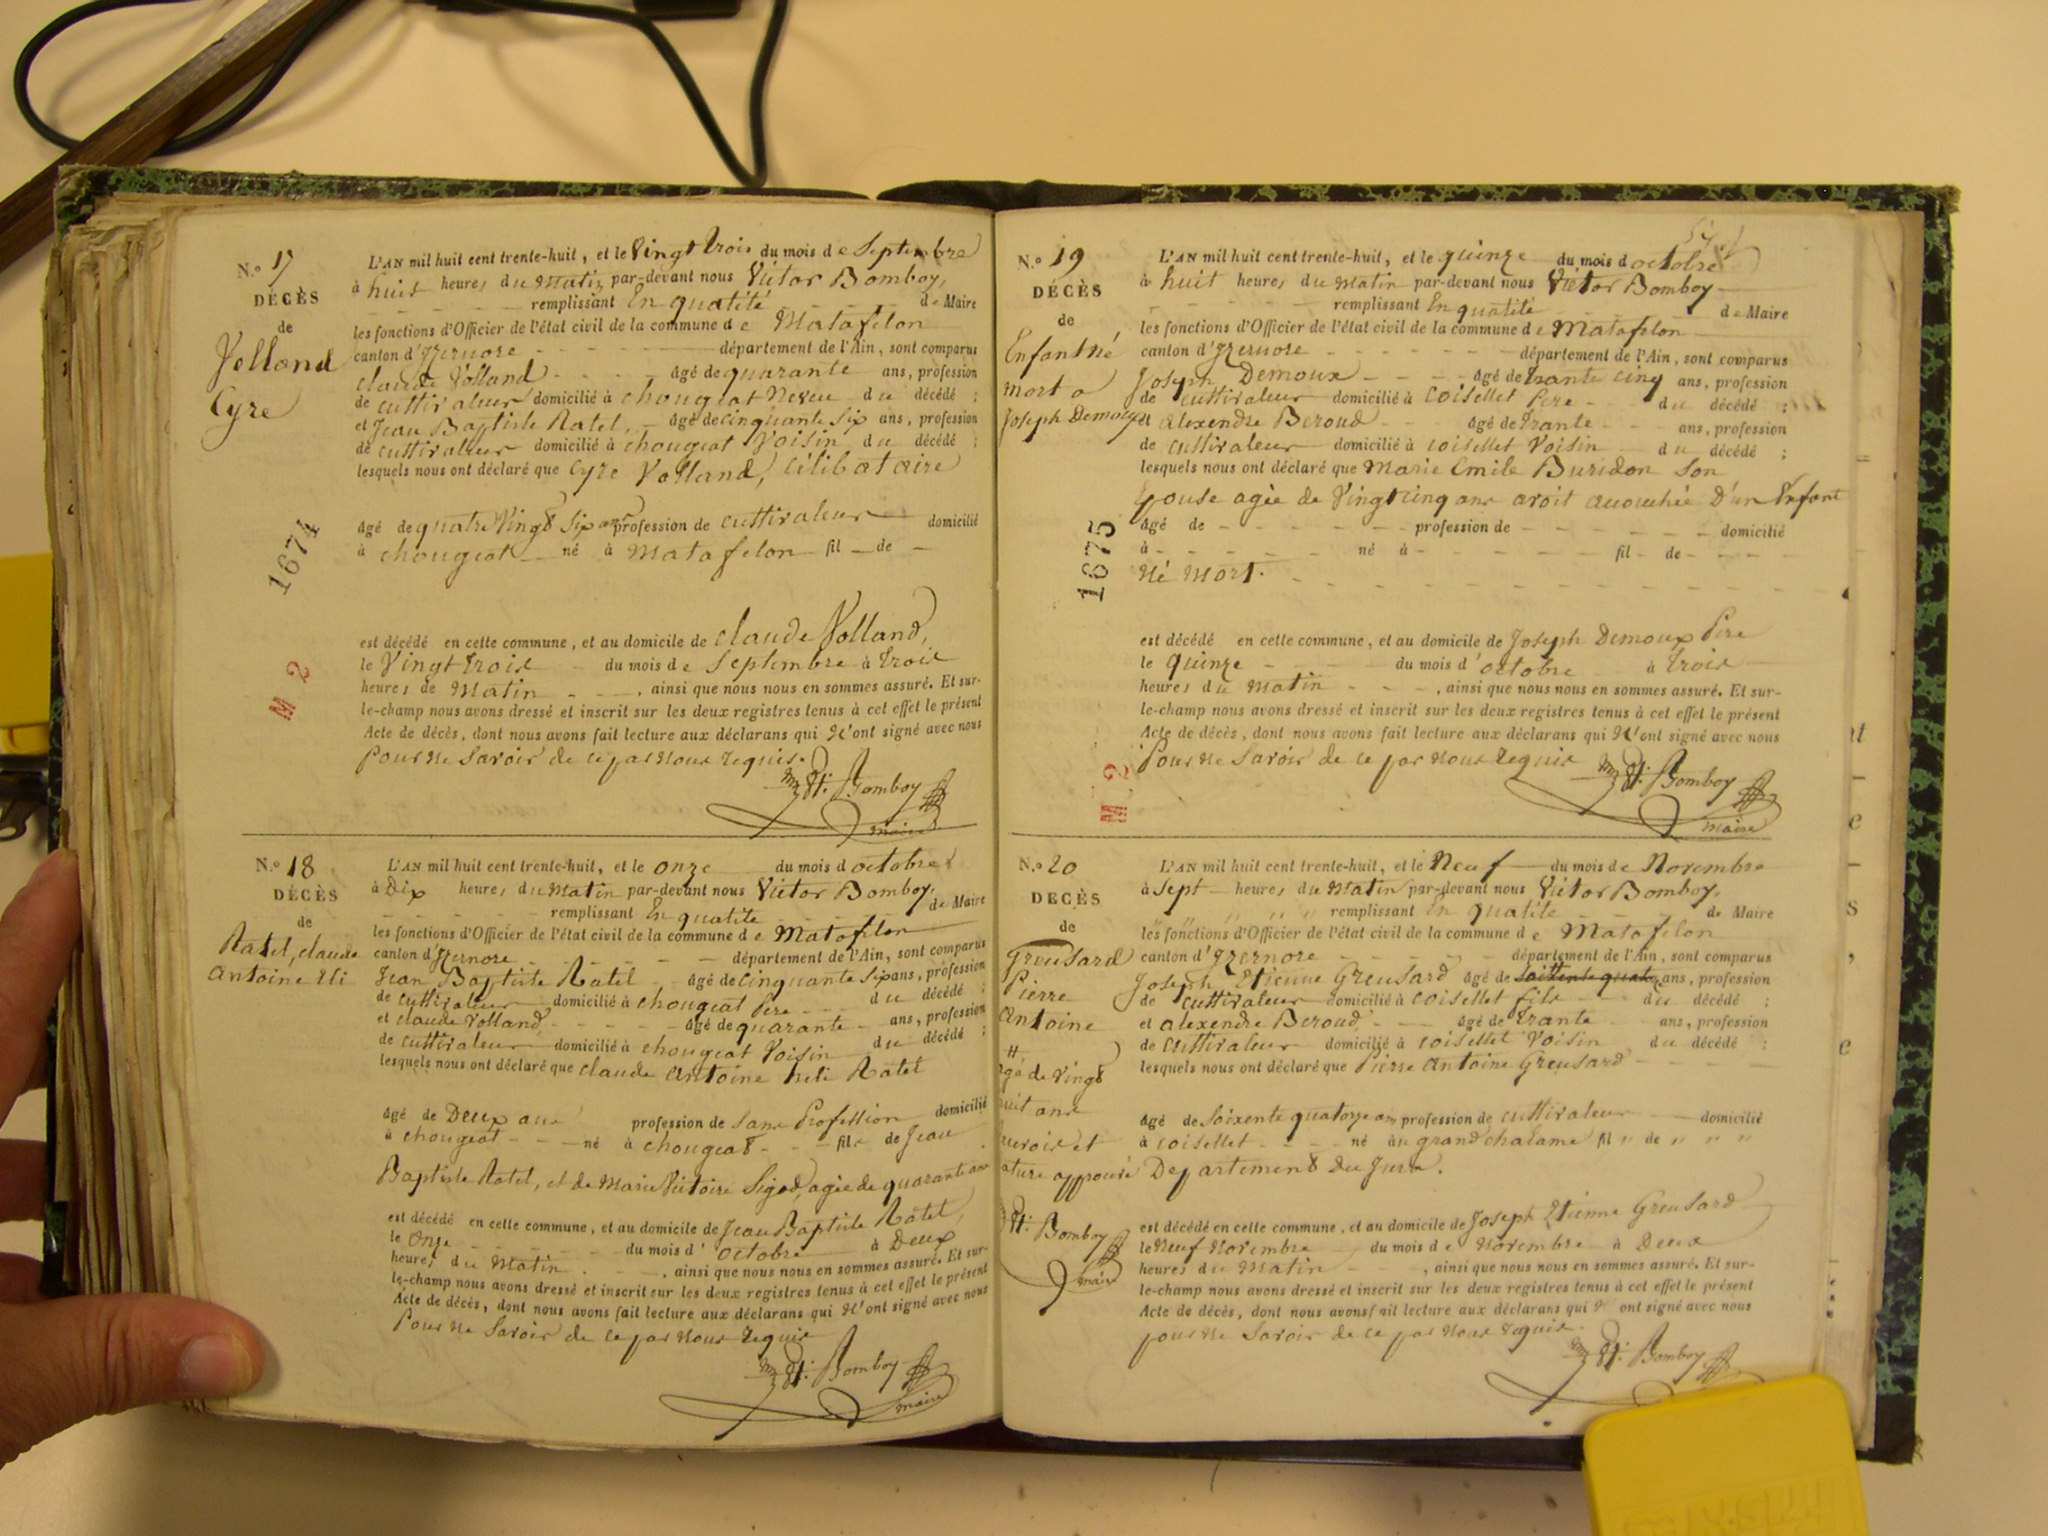 N.o 17
DÉCÈS
de
Volland
Cyre
L'AN mil huit cent trente-huit, et le Vingt trois du mois de Septembre
à huit heures du Matin par-devant nous Victor Bomboy,
remplissant En qualité de Maire
les fonctions d'Officier de l'état civil de la commune de Matafelon
canton d'Izernore département de l'Ain, sont comparus
claude Volland âgé de quarante ans, profession
de cultivateur domicilié à chougeat Neveu du décédé ;
et Jean Baptiste Ratel, âgé de cinquante Six ans, profession
de cultivateur domicilié à chougeat Voisin du décédé ;
lesquels nous ont déclaré que Cyre Volland, Célibataire
âgé de quatre Vingt Six ans profession de cultivateur domicilié
à chougeat né à Matafelon fil de
1674
est décédé en cette commune, et au domicile de claude Volland,
le Vingt trois du mois de Septembre à trois
heures de Matin, ainsi que nous nous en sommes assuré. Et sur-
le-champ nous avons dressé et inscrit sur les deux registres tenus à cet effet le présent
Acte de décès, dont nous avons fait lecture aux déclarans qui N'ont signé avec nous
Pour Ne Savoir de ce par Nous requis.
M 2
Bomboy
maire
N.o 18
DÉCÈS
de
Ratel, claude
Antoine Eli
L'AN mil huit cent trente-huit, et le onze du mois d octobre
à Dix heures du Matin par-devant nous Victor Bomboy,
remplissant En qualité de Maire
les fonctions d'Officier de l'état civil de la commune de Matafelon
canton d'Izernore département de l'Ain, sont comparus
Jean Baptiste Ratel âgé de cinquante Six ans, profession
de cultivateur domicilié à chougeat Pere du décédé ;
et claude Volland âgé de quarante ans, profession
de cultivateur domicilié à chougeat Voisin du décédé ;
lesquels nous ont déclaré que claude Antoine heli Ratel
âgé de Deux ans profession de Sans Profession domicilié
à chougeat né à chougeat fils de Jean
Baptiste Ratel, et de Marie Victoire Sigod, agée de quarante ans
est décédé en cette commune, et au domicile de Jean Baptiste Ratel,
le Onze du mois d' octobre à Deux
heures du Matin, ainsi que nous nous en sommes assuré. Et sur-
le-champ nous avons dressé et inscrit sur les deux registres tenus à cet effet le présent
Acte de décès, dont nous avons fait lecture aux déclarans qui N'ont signé avec nous
Pour Ne Savoir de ce par Nous requis
Bomboy
maire
N.o 19
DÉCÈS
de
Enfant Né
mort a
Joseph Demoux
L'AN mil huit cent trente-huit, et le quinze du mois d octobre
à huit heures du Matin par-devant nous Victor Bomboy
remplissant En qualité de Maire
les fonctions d'Officier de l'état civil de la commune de Matafelon
canton d'Izernore département de l'Ain, sont comparus
Joseph Demoux âgé de trante cinq ans, profession
de cultivateur domicilié à Coisellet Pere du décédé ;
et alexendre Beroud âgé de trante ans, profession
de cultivateur domicilié à coisellet Voisin du décédé ;
lesquels nous ont déclaré que Marie Emile Buridon Son
Epouse agée de Vingt cinq ans avoit accouchée D'un Enfant
âgé de profession de domicilié
à né à fil de
Né Mort.
1675
est décédé en cette commune, et au domicile de Joseph Demoux Pere
le quinze du mois d' octobre à trois
heures du Matin, ainsi que nous nous en sommes assuré. Et sur-
le-champ nous avons dressé et inscrit sur les deux registres tenus à cet effet le présent
Acte de décès, dont nous avons fait lecture aux déclarans qui N'ont signé avec nous
Pour Ne Savoir de ce par Nous requis
M 2
Bomboy
maire
N.o 20
DÉCÈS
de
Greusard
Pierre
Antoine
L'AN mil huit cent trente-huit, et le Neuf du mois de Novembre
à Sept heures du Matin par-devant nous Victor Bomboy,
remplissant En qualité de Maire
les fonctions d'Officier de l'état civil de la commune de Matafelon
canton d'Izernore département de l'Ain, sont comparus
Joseph Etienne Greusard âgé de ans, profession
de cultivateur domicilié à coisellet fils du décédé ;
et alexendre Beroud âgé de trante ans, profession
de cultivateur domicilié à coisellet Voisin du décédé ;
lesquels nous ont déclaré que Pierre Antoine Greusard
âgé de Soixente quatorze ans profession de cultivateur domicilié
à coisellet né au grand chalame fil " de " " "
Departement du Jura.
de Vingt
ans
et
approuvé
Bomboy
maire
est décédé en cette commune, et au domicile de Joseph Etienne Greusard
le Neuf Novembre du mois de Novembre à Deux
heures du Matin, ainsi que nous nous en sommes assuré. Et sur-
le-champ nous avons dressé et inscrit sur les deux registres tenus à cet effet le présent
Acte de décès, dont nous avons fait lecture aux déclarans qui N ont signé avec nous
pour Ne Savoir de ce par Nous requis.
Bomboy